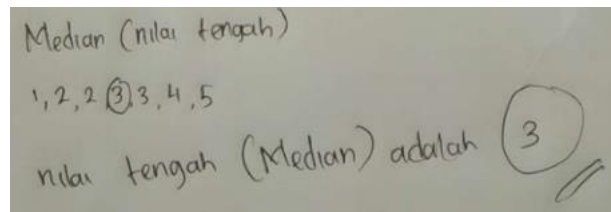 Median (nilai tengah)
1, 2, 2 3, 3, 4, 5
nilai tengah (Median) adalah 3